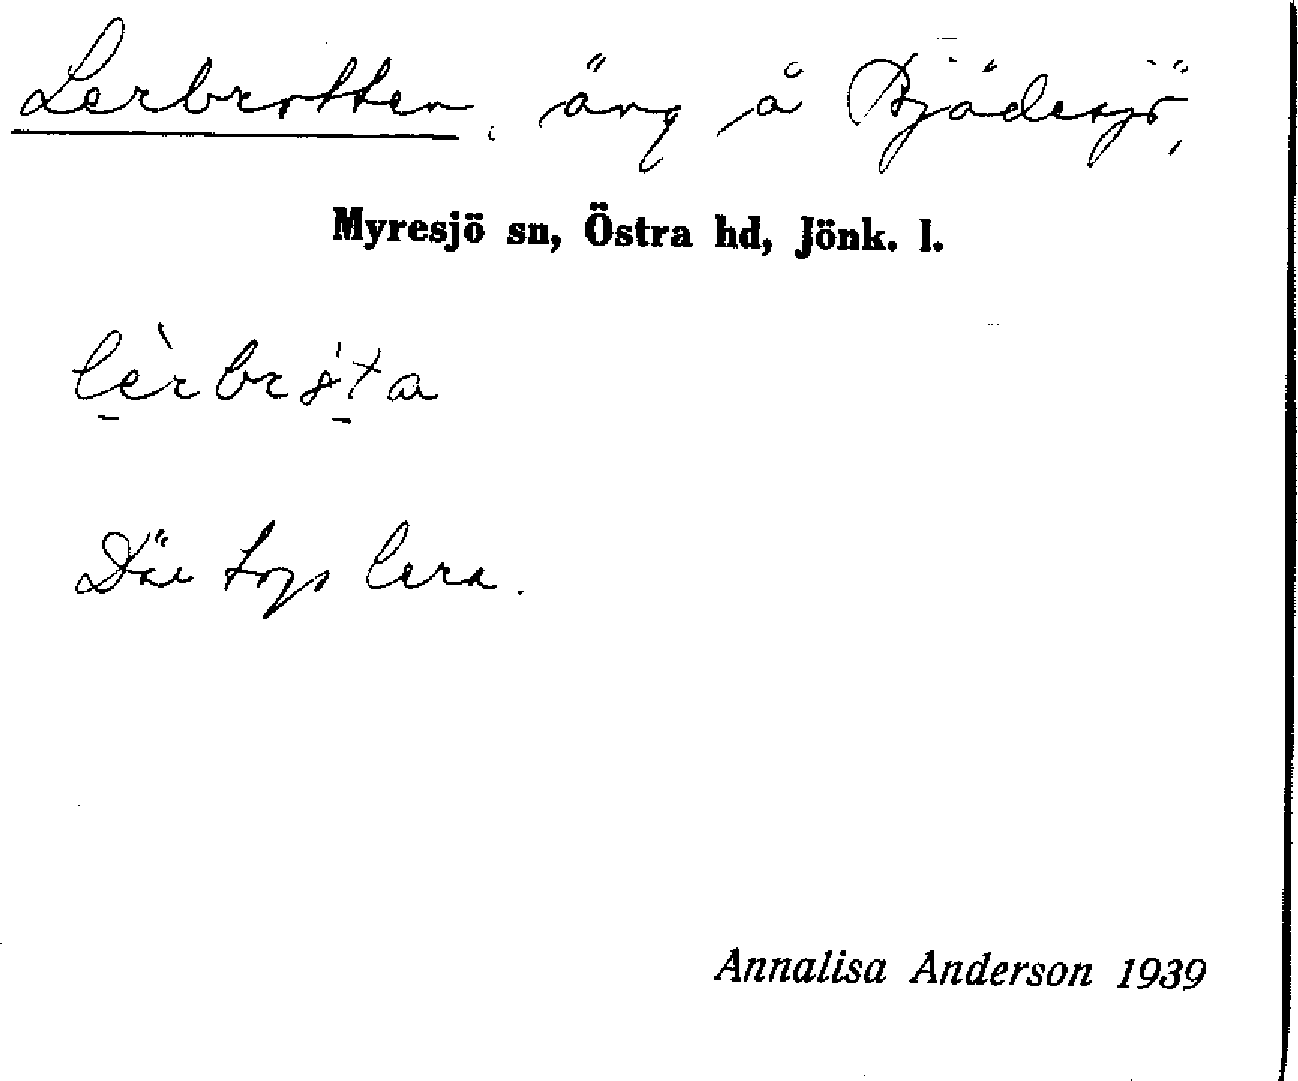 Lerbrotten, äng å Bjädesjö,
Myresjö sn, Östra hd, Jönk. l.
Där togs lera.
Annalisa Anderson 1939